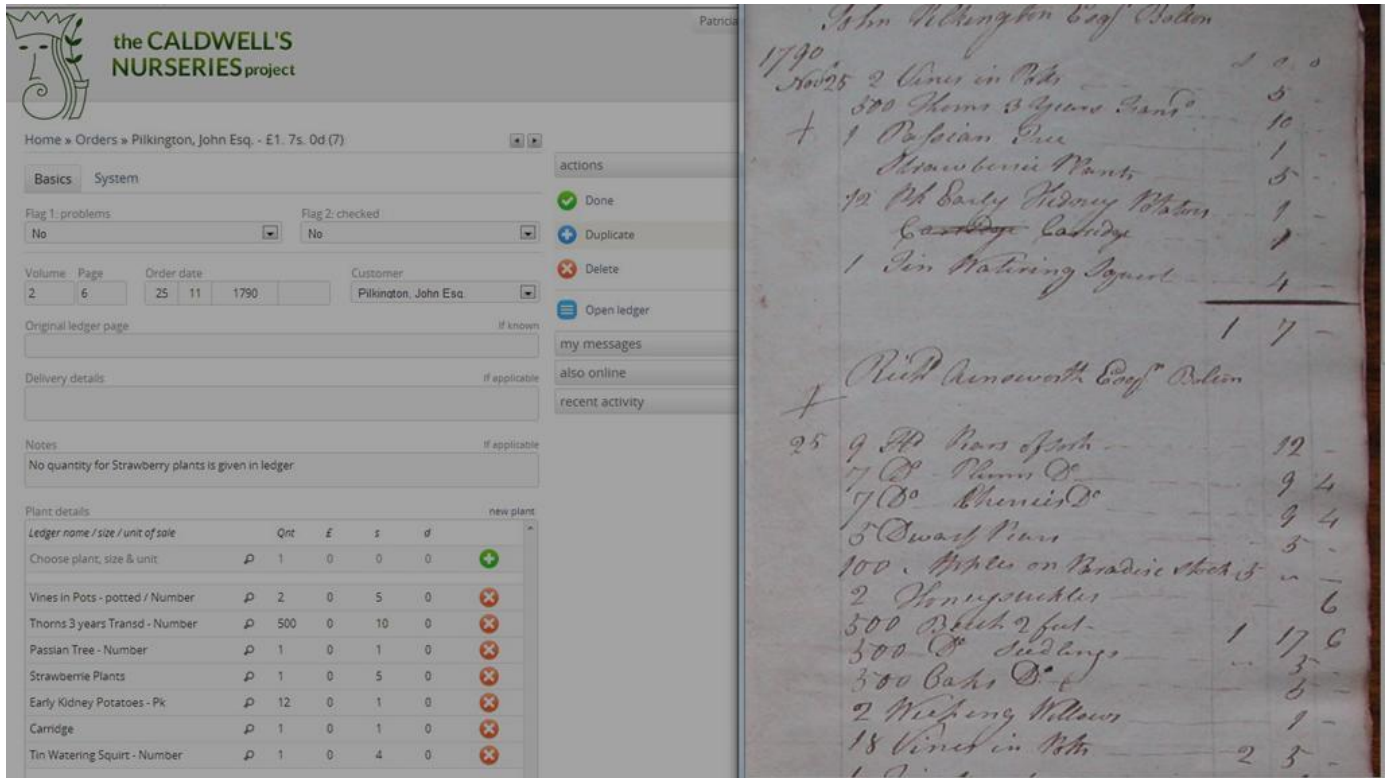 the CALDWELL'S
NURSERIES project
Patricia
Home » Orders » Pilkington, John Esq. - £1. 7s. 0d (7)
Basics System
Flag 1: problems Flag 2: checked
No No
Volume Page Order date Customer
2 6 25 11 1790 Pilkington, John Esq.
Original ledger page If known
Delivery details If applicable
Notes If applicable
No quantity for Strawberry plants is given in ledger
Plant details new plant
Ledger name / size / unit of sale Qnt £ s d
Choose plant, size & unit 1 0 0 0
Vines in Pots - potted / Number 2 0 5 0
Thorns 3 years Transd - Number 500 0 10 0
Passian Tree - Number 1 0 1 0
Strawberrie Plants 1 0 5 0
Early Kidney Potatoes - Pk 12 0 1 0
Carridge 1 0 1 0
Tin Watering Squirt - Number 1 0 4 0
actions
Done
Duplicate
Delete
Open ledger
my messages
also online
recent activity
John Pilkington Esqr Bolton
1790
Novr 25 2 Vines in Potts 5 -
500 Thorns 3 Years Transd 10 -
+ 1 Passian Tree 1 -
Strawberrie Plants 5 -
12 Pk Early Kidney Potatoes 1 -
Carridge 1
1 Tin Watering Squirt 4 -
1 7 -
Richd Ainsworth Esqr Bolton
+
25 9 Pears of sorts 12 -
7 Do - Plumbs Do 9 4
7 Do Cherries Do 9 4
5 Dwarf Pears 5 -
100 Apples on Paradise stock 5 - -
2 Honeysuckles 6
500 Beech 2 feet 1 17 6
500 Do Seedlings 5 -
500 Oaks Do 5 -
2 Weeping Willows 1 -
18 Vines in Potts 2 5 -